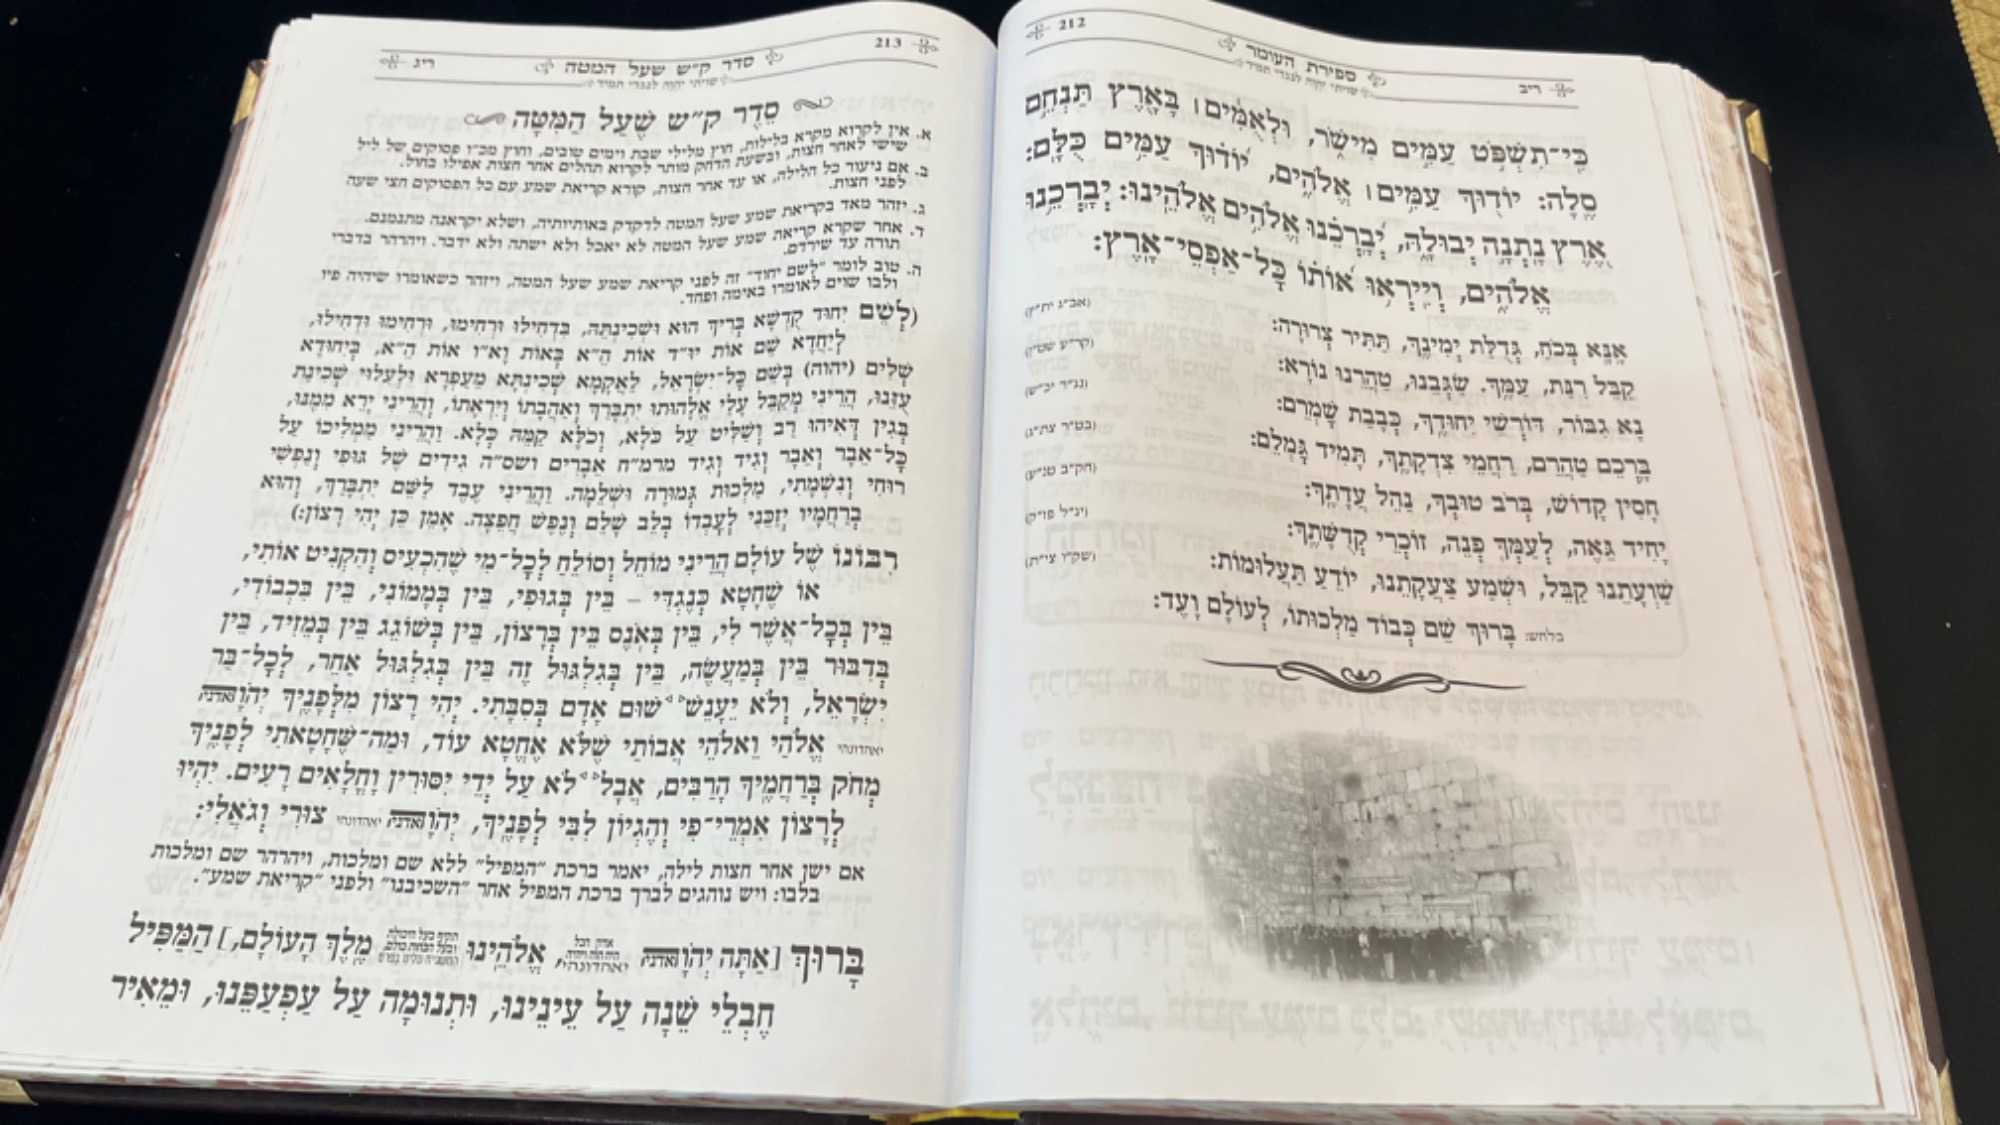 212
ספירת העומר
ריב
שויתי יהוה לנגדי תמיד
כִּי־תִשְׁפֹּט עַמִּים מִישֹׁר, וּלְאֻמִּים ׀ בָּאָרֶץ תַּנְחֵם
סֶלָה: יוֹדוּךָ עַמִּים ׀ אֱלֹהִים, יוֹדוּךָ עַמִּים כֻּלָּם:
אֶרֶץ נָתְנָה יְבוּלָהּ, יְבָרְכֵנוּ אֱלֹהִים אֱלֹהֵינוּ: יְבָרְכֵנוּ
אֱלֹהִים, וְיִירְאוּ אוֹתוֹ כָּל־אַפְסֵי־אָרֶץ:
אָנָּא בְּכֹחַ, גְּדֻלַּת יְמִינֶךָ, תַּתִּיר צְרוּרָה: (אב״ג ית״ץ)
קַבֵּל רִנַּת, עַמֶּךָ. שַׂגְּבֵנוּ, טַהֲרֵנוּ נוֹרָא: (קר״ע שט״ן)
נָא גִבּוֹר, דּוֹרְשֵׁי יִחוּדֶךָ, כְּבָבַת שָׁמְרֵם: (נג״ד יכ״ש)
בָּרְכֵם טַהֲרֵם, רַחֲמֵי צִדְקָתֶךָ, תָּמִיד גָּמְלֵם: (בט״ר צת״ג)
חָסִין קָדוֹשׁ, בְּרֹב טוּבְךָ, נַהֵל עֲדָתֶךָ: (חק״ב טנ״ע)
יָחִיד גֵּאֶה, לְעַמְּךָ פְּנֵה, זוֹכְרֵי קְדֻשָּׁתֶךָ: (יג״ל פז״ק)
שַׁוְעָתֵנוּ קַבֵּל, וּשְׁמַע צַעֲקָתֵנוּ, יוֹדֵעַ תַּעֲלוּמוֹת: (שק״ו צי״ת)
בלחש: בָּרוּךְ שֵׁם כְּבוֹד מַלְכוּתוֹ, לְעוֹלָם וָעֶד:
213
סדר ק״ש שעל המטה
ריג
שויתי יהוה לנגדי תמיד
סֵדֶר ק״ש שֶׁעַל הַמִּטָּה
א. אין לקרוא מקרא בלילות, חוץ מלילי שבת וימים טובים, וחוץ מכ״ו פסוקים של ליל
שישי לאחר חצות, ובשעת הדחק מותר לקרוא תהלים אחר חצות אפילו בחול.
ב. אם ניעור כל הלילה, או עד אחר חצות, קורא קריאת שמע עם כל הפסוקים חצי שעה
לפני חצות.
ג. יזהר מאד בקריאת שמע שעל המטה לדקדק באותיותיה, ושלא יקראנה מתנמנם.
ד. אחר שקרא קריאת שמע שעל המטה לא יאכל ולא ישתה ולא ידבר. ויהרהר בדברי
תורה עד שירדם.
ה. טוב לומר ״לשם יחוד״ זה לפני קריאת שמע שעל המטה, ויזהר כשאומרו שיהיה פיו
ולבו שוים לאומרו באימה ופחד.
(לְשֵׁם יִחוּד קֻדְשָׁא בְּרִיךְ הוּא וּשְׁכִינְתֵּהּ, בִּדְחִילוּ וּרְחִימוּ, וּרְחִימוּ וּדְחִילוּ,
לְיַחֲדָא שֵׁם אוֹת יוּ״ד אוֹת הֵ״א בְּאוֹת וָא״ו אוֹת הֵ״א, בְּיִחוּדָא
שְׁלִים (יהוה) בְּשֵׁם כָּל־יִשְׂרָאֵל, לְאָקְמָא שְׁכִינְתָּא מֵעַפְרָא וּלְעִלּוּי שְׁכִינַת
עֻזֵּנוּ, הֲרֵינִי מְקַבֵּל עָלַי אֱלָהוּתוֹ יִתְבָּרַךְ וְאַהֲבָתוֹ וְיִרְאָתוֹ, וַהֲרֵינִי יָרֵא מִמֶּנּוּ,
בְּגִין דְּאִיהוּ רַב וְשַׁלִּיט עַל כֹּלָּא, וְכֹלָּא קַמֵּהּ כְּלָא. וַהֲרֵינִי מַמְלִיכוֹ עַל
כָּל־אֵבָר וְאֵבָר וְגִיד וְגִיד מרמ״ח אֵבָרִים ושס״ה גִידִים שֶׁל גּוּפִי וְנַפְשִׁי
רוּחִי וְנִשְׁמָתִי, מַלְכוּת גְּמוּרָה וּשְׁלֵמָה. וַהֲרֵינִי עֶבֶד לַשֵּׁם יִתְבָּרַךְ, וְהוּא
בְּרַחֲמָיו יְזַכֵּנִי לְעָבְדוֹ בְּלֵב שָׁלֵם וְנֶפֶשׁ חֲפֵצָה. אָמֵן כֵּן יְהִי רָצוֹן:)
רִבּוֹנוֹ שֶׁל עוֹלָם הֲרֵינִי מוֹחֵל וְסוֹלֵחַ לְכָל־מִי שֶׁהִכְעִיס וְהִקְנִיט אוֹתִי,
אוֹ שֶׁחָטָא כְּנֶגְדִּי – בֵּין בְּגוּפִי, בֵּין בְּמָמוֹנִי, בֵּין בִּכְבוֹדִי,
בֵּין בְּכָל־אֲשֶׁר לִי, בֵּין בְּאֹנֶס בֵּין בְּרָצוֹן, בֵּין בְּשׁוֹגֵג בֵּין בְּמֵזִיד, בֵּין
בְּדִבּוּר בֵּין בְּמַעֲשֶׂה, בֵּין בְּגִלְגּוּל זֶה בֵּין בְּגִלְגּוּל אַחֵר, לְכָל־בַּר
יִשְׂרָאֵל, וְלֹא יֵעָנֵשׁ שׁוּם אָדָם בְּסִבָּתִי. יְהִי רָצוֹן מִלְּפָנֶיךָ יְהֹוָה
יאהדונהי אֱלֹהַי וֵאלֹהֵי אֲבוֹתַי שֶׁלֹּא אֶחֱטָא עוֹד, וּמַה־שֶּׁחָטָאתִי לְפָנֶיךָ
מְחֹק בְּרַחֲמֶיךָ הָרַבִּים, אֲבָל לֹא עַל יְדֵי יִסּוּרִין וָחֳלָאִים רָעִים. יִהְיוּ
לְרָצוֹן אִמְרֵי־פִי וְהֶגְיוֹן לִבִּי לְפָנֶיךָ, יְהֹוָה יאהדונהי צוּרִי וְגֹאֲלִי:
אם ישן אחר חצות לילה, יאמר ברכת ״המפיל״ ללא שם ומלכות, ויהרהר שם ומלכות
בלבו: ויש נוהגים לברך ברכת המפיל אחר ״השכיבנו״ ולפני ״קריאת שמע״.
בָּרוּךְ [אַתָּה יְהֹוָה יאהדונהי, אֱלֹהֵינוּ מֶלֶךְ הָעוֹלָם,] הַמַּפִּיל
חֶבְלֵי שֵׁנָה עַל עֵינֵינוּ, וּתְנוּמָה עַל עַפְעַפֵּנוּ, וּמֵאִיר